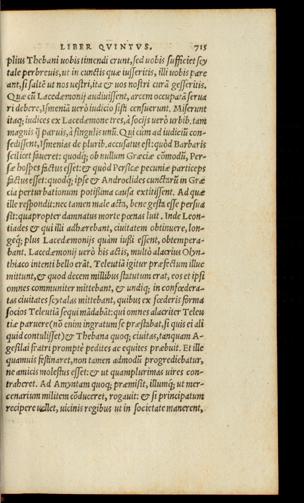 LIBER QVINTVS. 715
plius Thebani uobis timendi erunt, sed uobis sufficiet scy
tale perbreuis, ut in cunctis quæ iusseritis, illi uobis pare
ant, si saltē ut nos uestri, ita & uos nostri curā gesseritis.
Quæ cū Lacedæmonij audiuissent, arcem occupatā serua
ri debere, Ismeniā uerò iudicio sisti censuerunt. Miserunt
itaq; iudices ex Lacedæmone tres, à socijs uerò urbib. tam
magnis q̃ paruis, à singulis unū. Qui cum ad iudiciū con-
sedissent, Ismenias de plurib. accusatus est: quòd Barbaris
scilicet faueret: quodq; ob nullum Græciæ cōmodū, Per-
sæ hospes factus esset: & quòd Persicæ pecuniæ particeps
factus esset: quodq; ipse & Androclides cunctarū in Græ
cia perturbationum potissima causa extitissent. Ad quæ
ille respondit: nec tamen male acta, bene gesta esse persua
sit: quapropter damnatus morte pœnas luit. Inde Leon-
tiades & qui illi adhærebant, ciuitatem obtinuere, lon-
geq; plus Lacedæmonijs quàm iussi essent, obtempera-
bant. Lacedæmonij uerò his actis, multò alacrius Olyn-
thiaco intenti bello erāt. Teleutiā igitur præfectum illuc
mittunt, & quod decem millibus statutum erat, eos et ipsi
omnes communiter mittebant, & undiq; in confœdera-
tas ciuitates scytalas mittebant, quibus ex fœderis formá
socios Teleutiā sequi mādabāt: qui omnes alacriter Teleu
tiæ paruere (nō enim ingratum se præstabat, si quis ei ali
quid contulisset) & Thebana quoq; ciuitas, tanquam A-
gesilai fratri promptè pedites ac equites præbuit. Et ille
quamuis festinaret, non tamen admodū progrediebatur,
ne amicis molestus esset: & ut quamplurimas uires con-
traheret. Ad Amyntam quoq; præmisit, illumq; ut mer-
cenarium militem cōduceret, rogauit: & si principatum
recipere uellet, uicinis regibus ut in societate manerent,